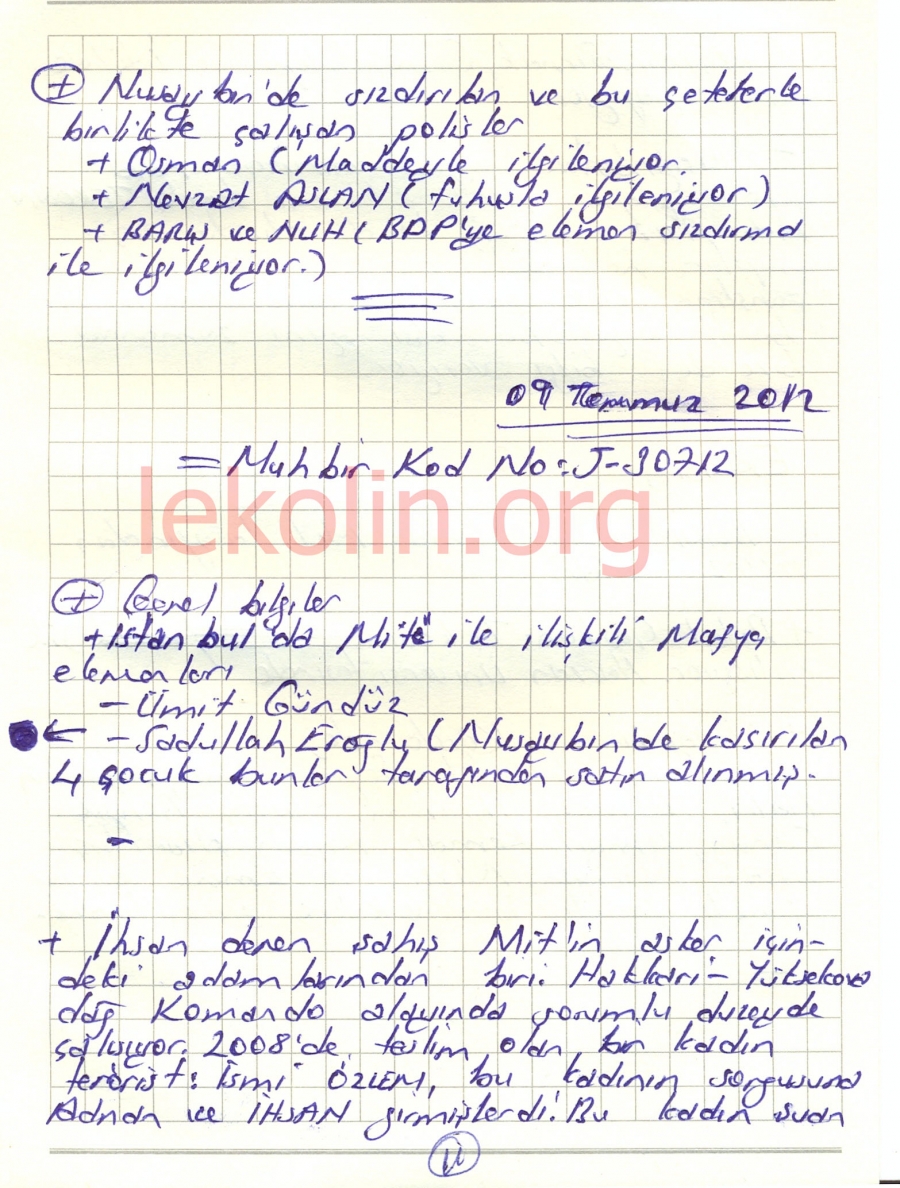 + Nusaybin'de sızdırılan ve bu çetelerle
birlikte çalışan polisler
+ Osman (Maddeyle ilgileniyor.
+ Nevzat ASLAN (fuhuşla ilgileniyor)
+ ve NUH (BDP'ye eleman sızdırma
ile ilgileniyor.)
09 Temmuz 2012
= Muhbir Kod No: J-30712
lekolin.org
+ Genel bilgiler
+ İstanbul'da Mit ile ilişkili Mafya
elemanları
- Ümit Gündüz
- Sadullah Eroğlu (Nusaybin'de kaçırılan
4 çocuk bunlar tarafından satın alınmış.
-
+ İhsan denen şahış Mit'in asker için-
deki adamlarından biri. Hakkari - Yüksekova
dağ Komando alayında sorumlu düzeyde
çalışıyor. 2008'de teslim olan bir kadın
terörist: İsmi ÖZLEM, bu kadının sorgusuna
Adnan ve İHSAN girmişlerdi. Bu kadın şuan
11